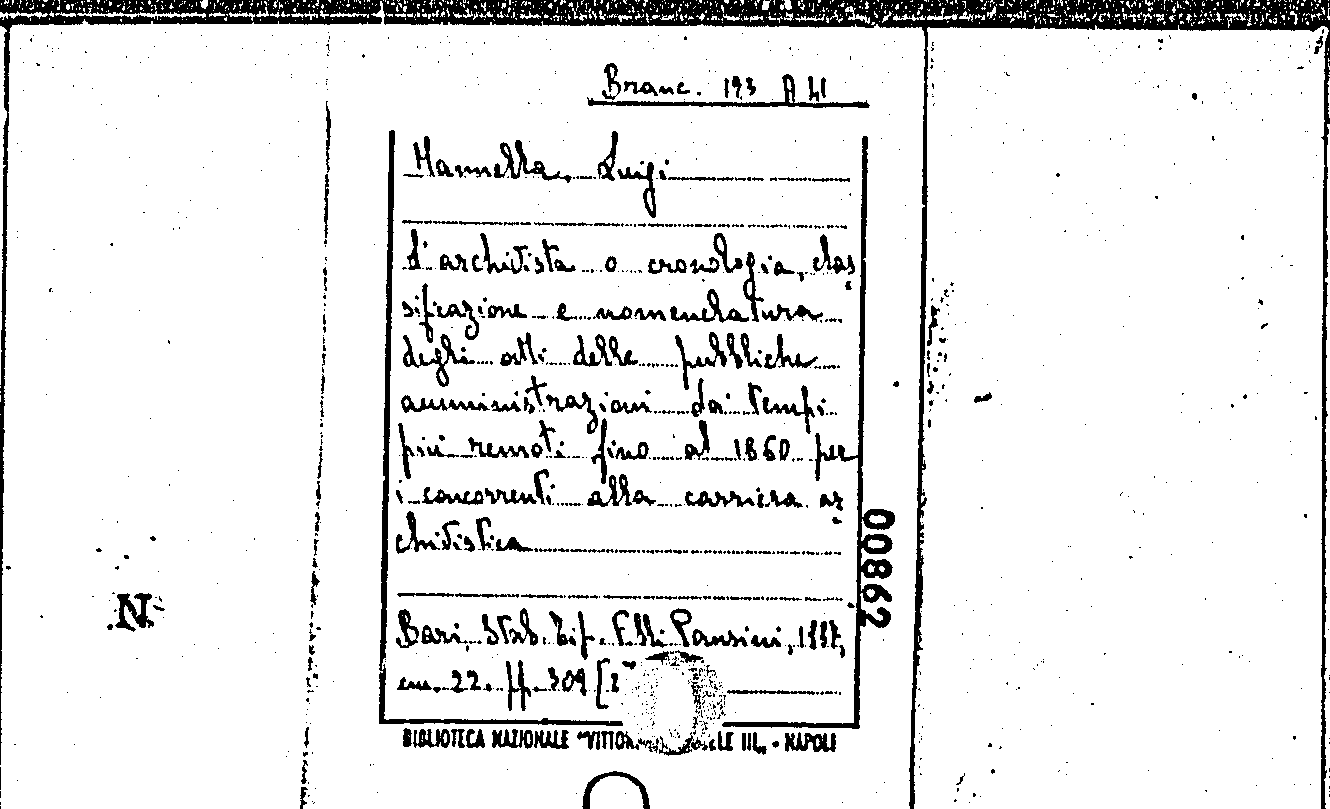 Branc. 193 A 41
Mannella Luigi
L'archivista o cronologia, clas
sifrazione e nomenclatura
degli atti delle pubbliche
amministrazioni dai tempi
più remoti fino al 1860 per
i concorrenti alla carriera ar
chivistica
00862
Bari, Stab. Tip. F.lli Pansini, 1887,
cm. 22. pp. 309
BIBLIOTECA NAZIONALE - NAPOLI
N